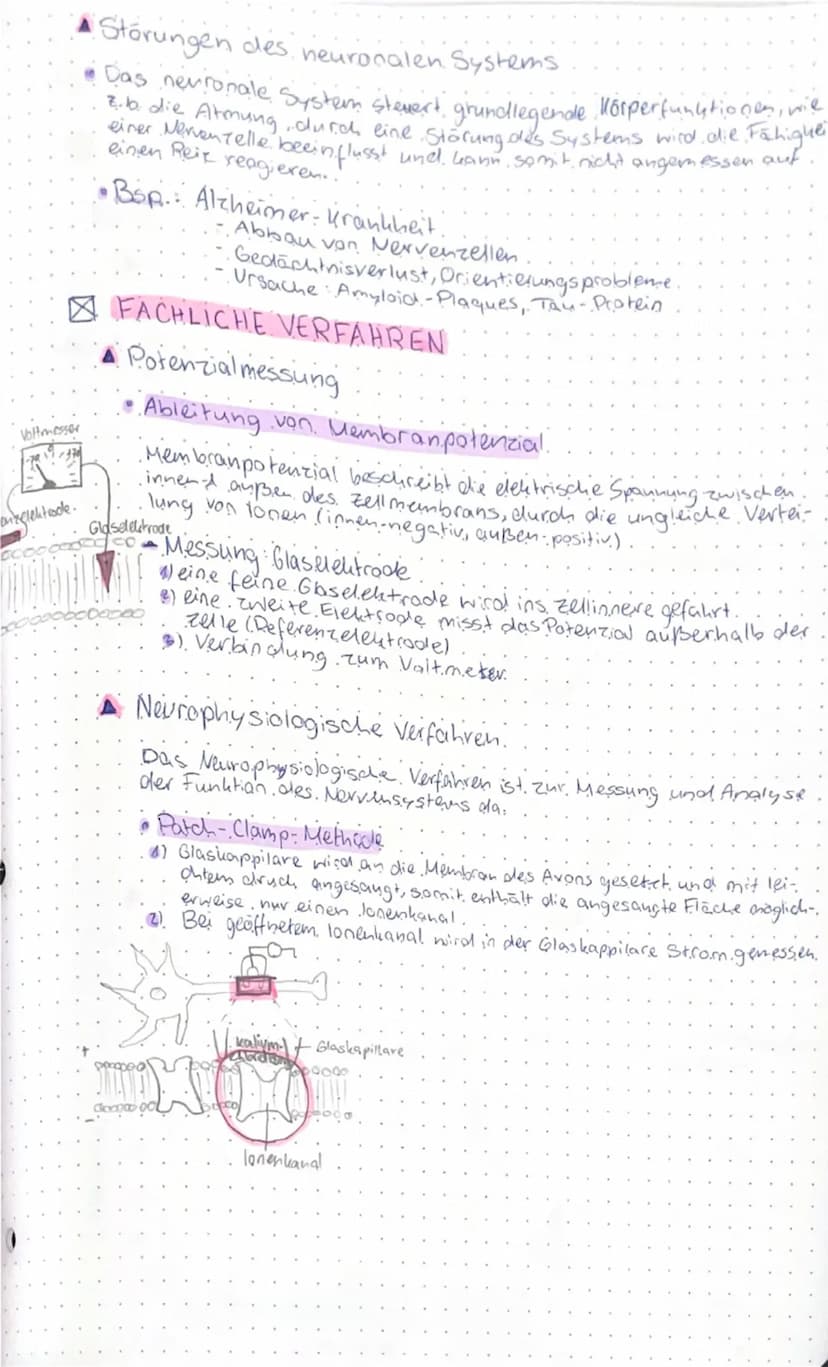 Störungen des neuronalen Systems
• Das neuronale System steuert grundlegende Körperfunktionen, wie
z.b. die Atmung, durch eine Störung des Systems wird die Fähigkei
einer Nervenzelle beeinflusst und kann somit nicht angemessen auf
einen Reiz reagieren.
• Bsp.: Alzheimer-Krankheit
- Abbau von Nervenzellen
- Gedächtnisverlust, Orientierungsprobleme
- Ursache: Amyloid-Plaques, Tau-Protein
FACHLICHE VERFAHREN
Potenzialmessung
• Ableitung von Membranpotenzial
Voltmesser
Membranpotenzial beschreibt die elektrische Spannung zwischen
innen & außen des Zellmembrans, durch die ungleiche Vertei-
lung von Ionen (innen-negativ, außen-positiv)
enzelektrode
Glaselektrode
Messung: Glaselektrode
1) eine feine Glaselektrode wird ins Zellinnere gefährt.
2) eine zweite Elektrode misst das Potenzial außerhalb der
Zelle (Referenzelektrode)
3) Verbindung zum Voltmeter.
Neurophysiologische Verfahren
Das Neurophysiologische Verfahren ist zur Messung und Analyse
der Funktion des Nervensystems da.
• Patch-Clamp-Methode
1) Glaskappilare wird an die Membran des Axons gesetzt und mit lei-
chtem druck angesaugt, somit enthält die angesaugte Fläche möglich-
erweise nur einen Ionenkanal.
2) Bei geöffnetem Ionenkanal wird in der Glaskappilare Strom gemessen.
kalium-
Glaskapillare
+
-
Ionenkanal